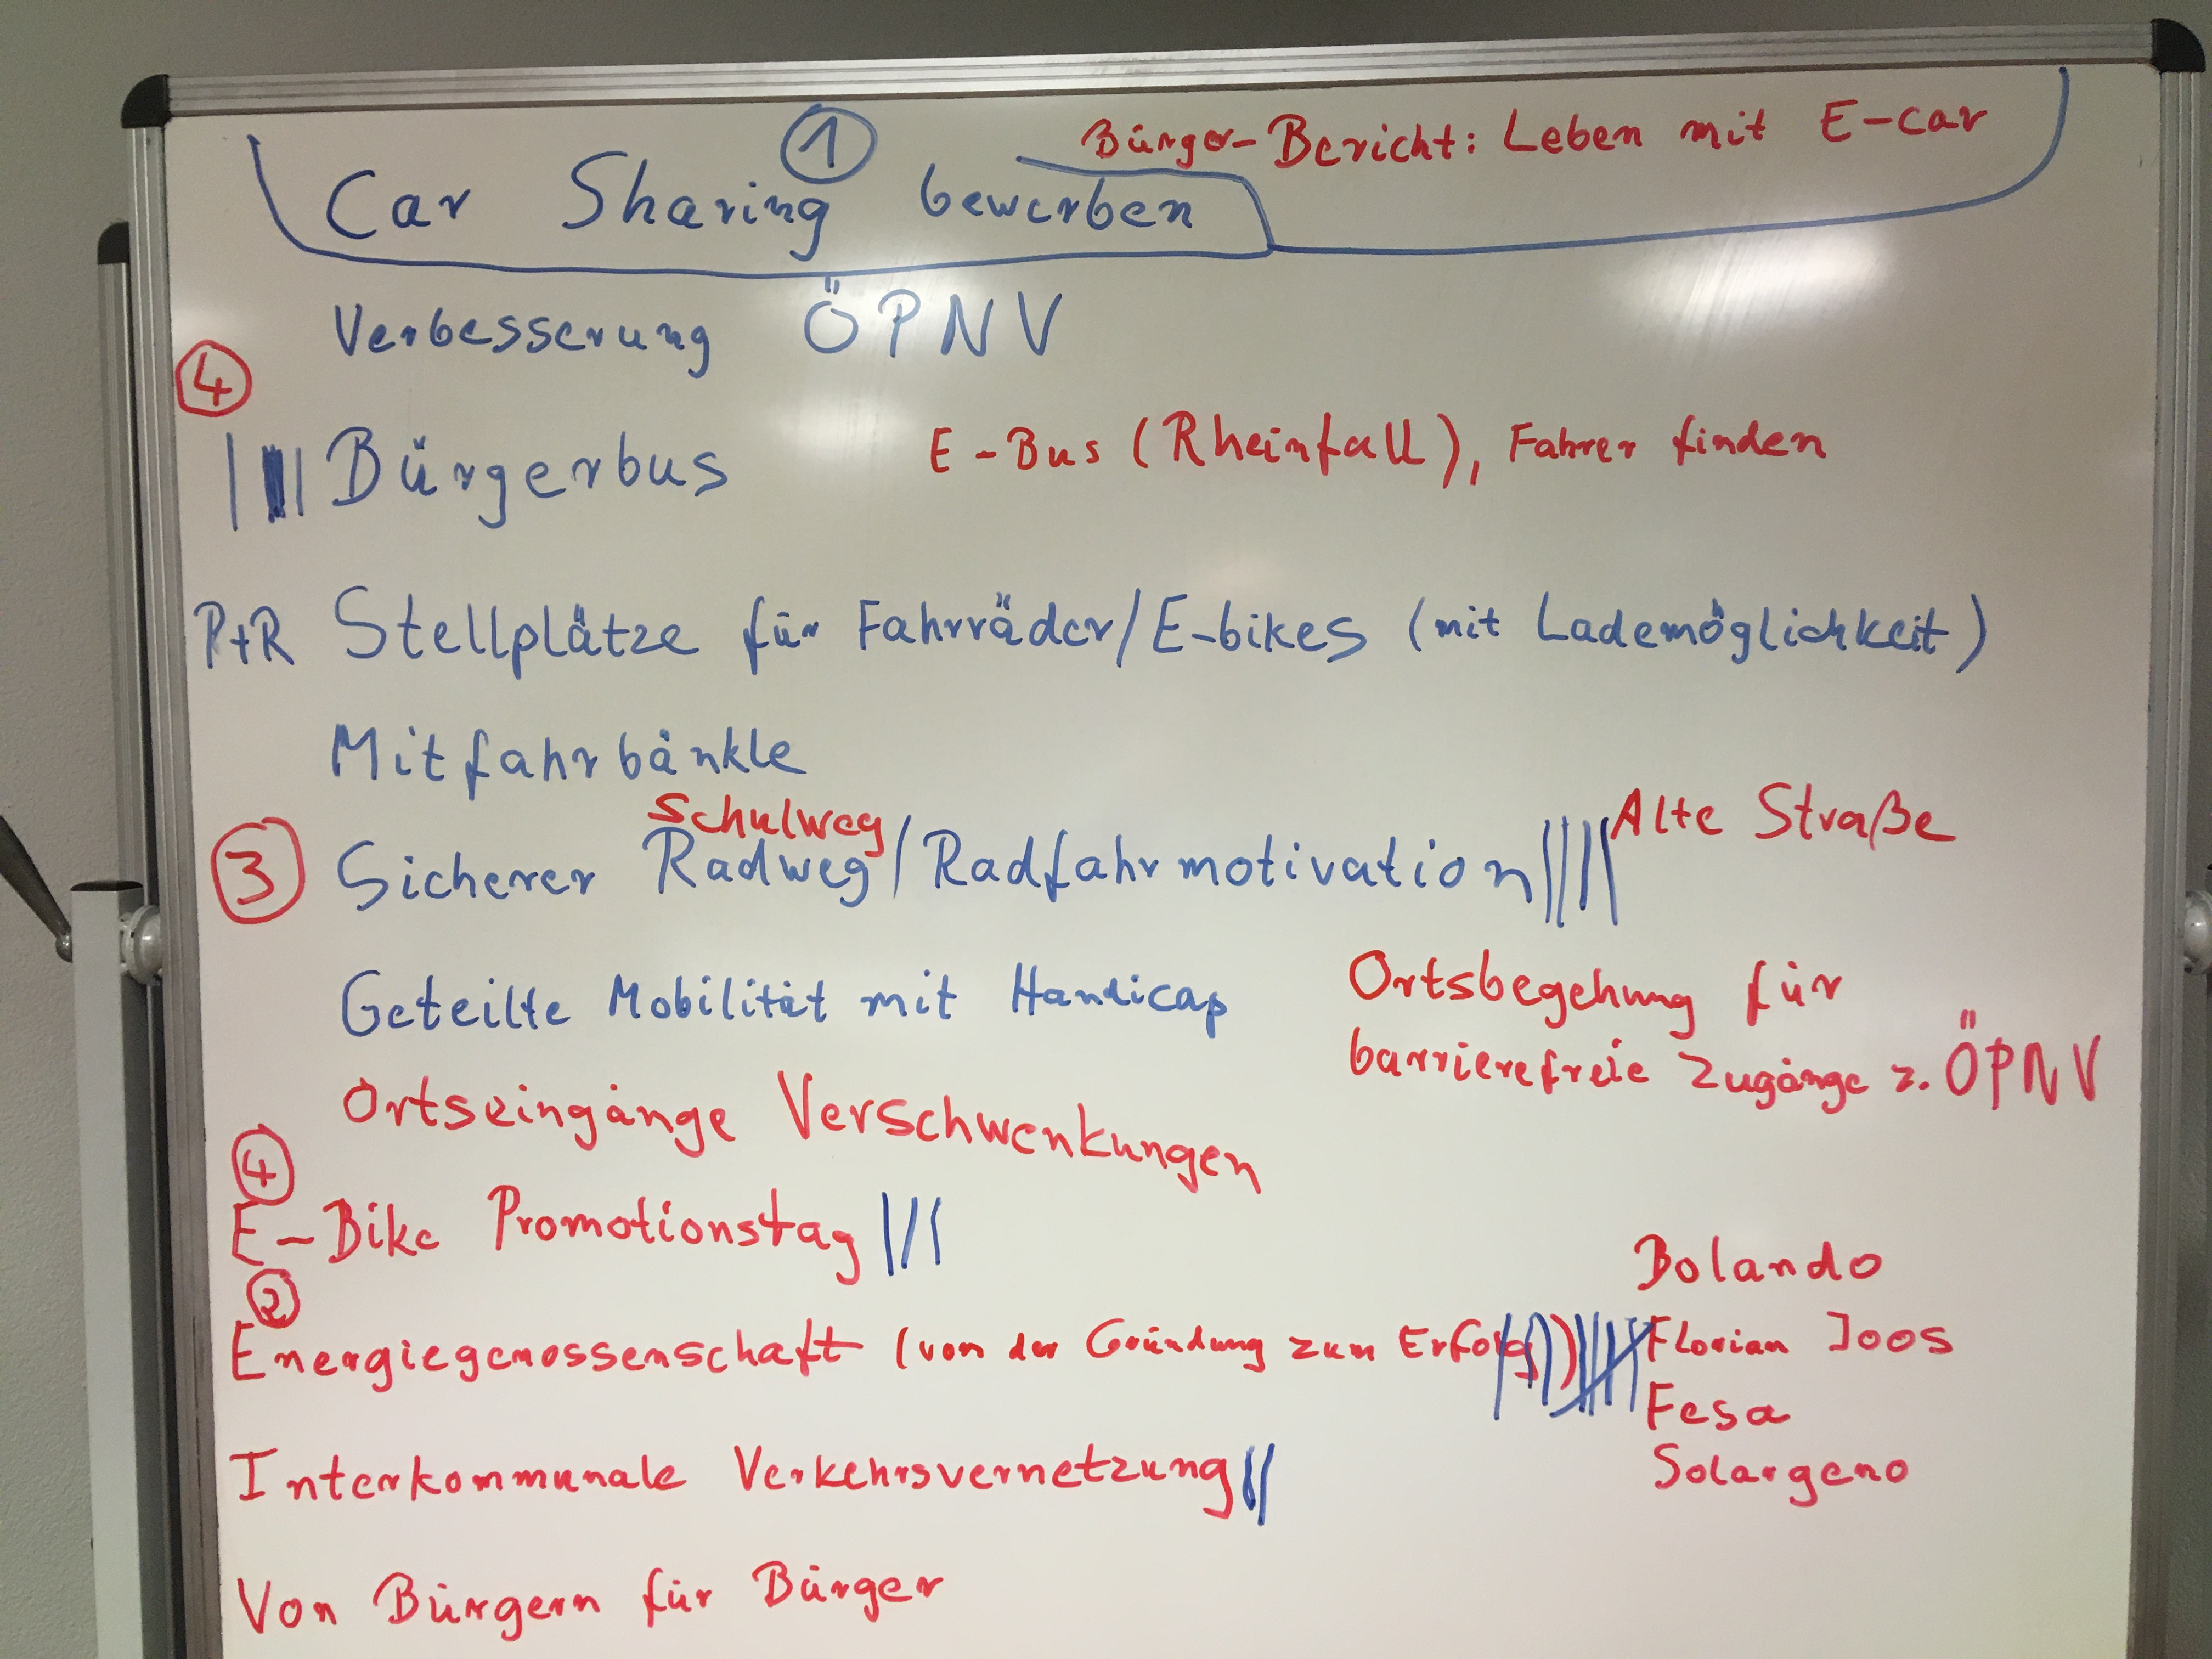 1
Bürger-Bericht: Leben mit E-car
Car Sharing bewerben
Verbesserung ÖPNV
4
Bürgerbus E-Bus (Rheinfall), Fahrer finden
P+R Stellplätze für Fahrräder/E-bikes (mit Lademöglichkeit)
Mitfahrbänkle
Schulweg Alte Straße
3 Sicherer Radweg/Radfahrmotivation
Geteilte Mobilität mit Handicap
Ortsbegehung für
barrierefreie Zugänge z. ÖPNV
Ortseingänge Verschwenkungen
4
E-Bike Promotionstag
2
Energiegenossenschaft (von der Gründung zum Erfolg)
Bolando
Florian Joos
Fesa
Solargeno
Interkommunale Verkehrsvernetzung
Von Bürgern für Bürger